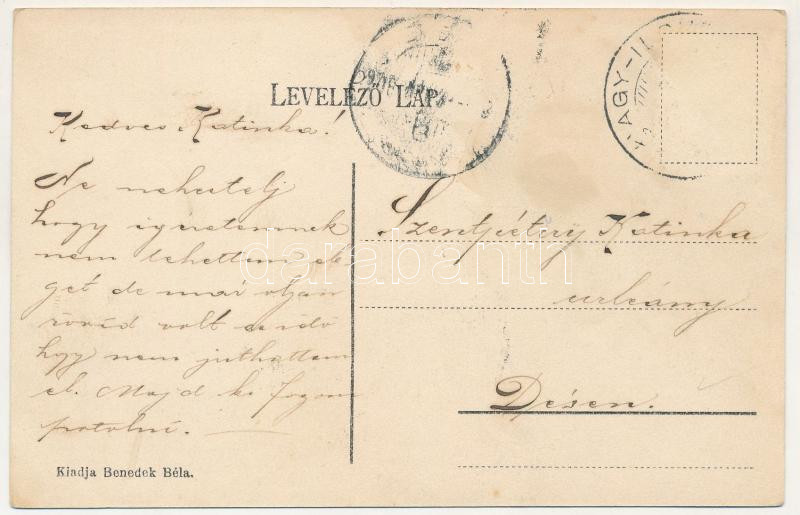 LEVELEZŐ LAP.
NAGY-IL
Kedves Katinka!
Ne neheztelj
hogy igeretemnek
nem tehettem ele-
get de már olyan
rövid volt az idő
hogy nem juthattam
el. Majd ki fogom
potolni.
Szentpétery Katinka
urleány
Désen.
Kiadja Benedek Béla.
darabanth